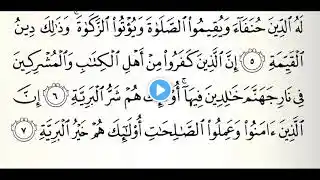 لَهُ الدِّينَ حُنَفَآءَ وَيُقِيمُوا۟ الصَّلَوٰةَ وَيُؤْتُوا۟ الزَّكَوٰةَ ۚ وَذَٰلِكَ دِينُ
الْقَيِّمَةِ ٥ إِنَّ الَّذِينَ كَفَرُوا۟ مِنْ أَهْلِ الْكِتَٰبِ وَالْمُشْرِكِينَ
فِى نَارِ جَهَنَّمَ خَٰلِدِينَ فِيهَآ ۚ أُو۟لَٰٓئِكَ هُمْ شَرُّ الْبَرِيَّةِ ٦ إِنَّ
الَّذِينَ ءَامَنُوا۟ وَعَمِلُوا۟ الصَّٰلِحَٰتِ أُو۟لَٰٓئِكَ هُمْ خَيْرُ الْبَرِيَّةِ ٧